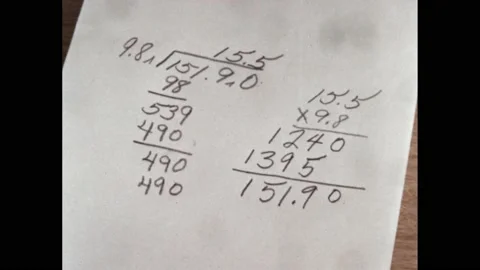 15.5
9.8 151.90
98
539
490
490
490
15.5
×9.8
1240
1395
151.90